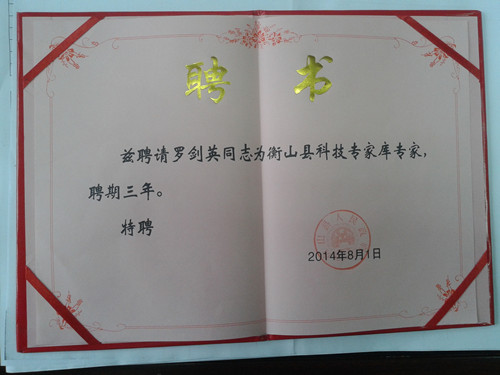 聘书
兹聘请罗剑英同志为衡山县科技专家库专家，
聘期三年。
特聘
2014年8月1日